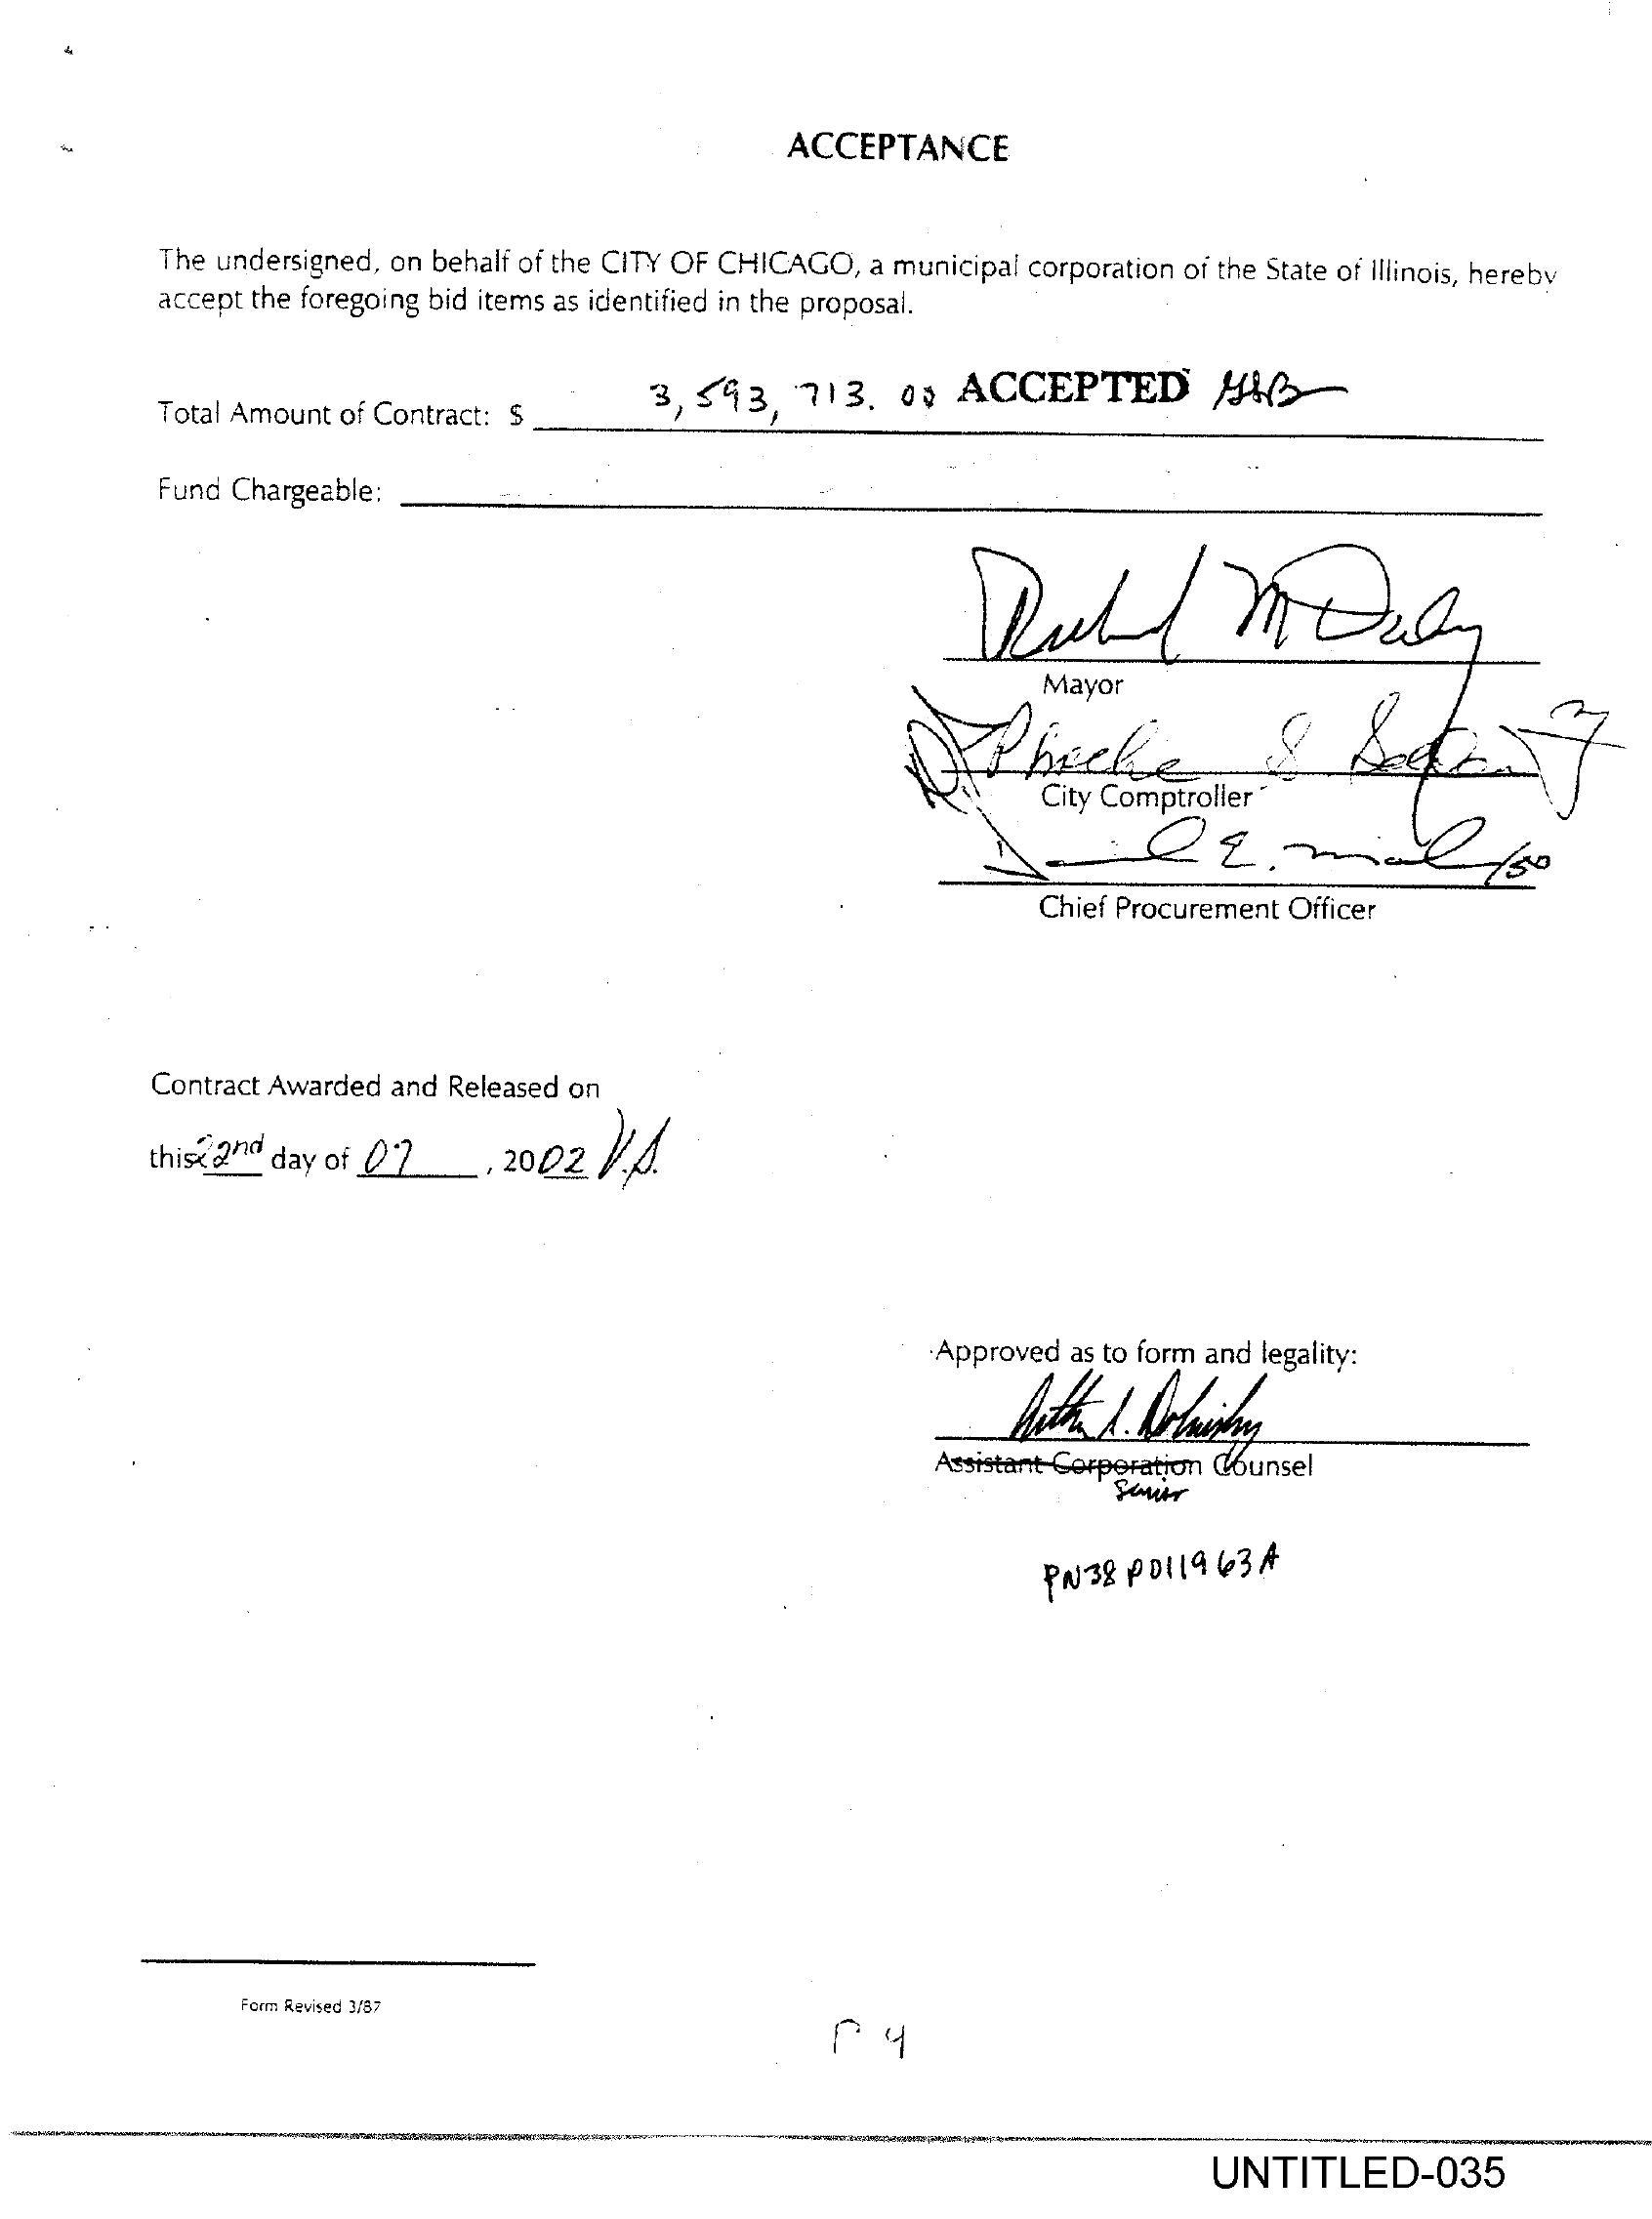 ACCEPTANCE
The undersigned, on behalf of the CITY OF CHICAGO, a municipal corporation of the State of Illinois, hereby
accept the foregoing bid items as identified in the proposal.
Total Amount of Contract: $ 3,593,713.00 ACCEPTED
Fund Chargeable:
Richard M Daley
Mayor
Phoebe S.
City Comptroller
E.
Chief Procurement Officer
Contract Awarded and Released on
this 22nd day of 07, 2002 V.S.
Approved as to form and legality:
Assistant Corporation Counsel
Senior
PN38PD11963A
Form Revised 3/87
P 4
UNTITLED-035